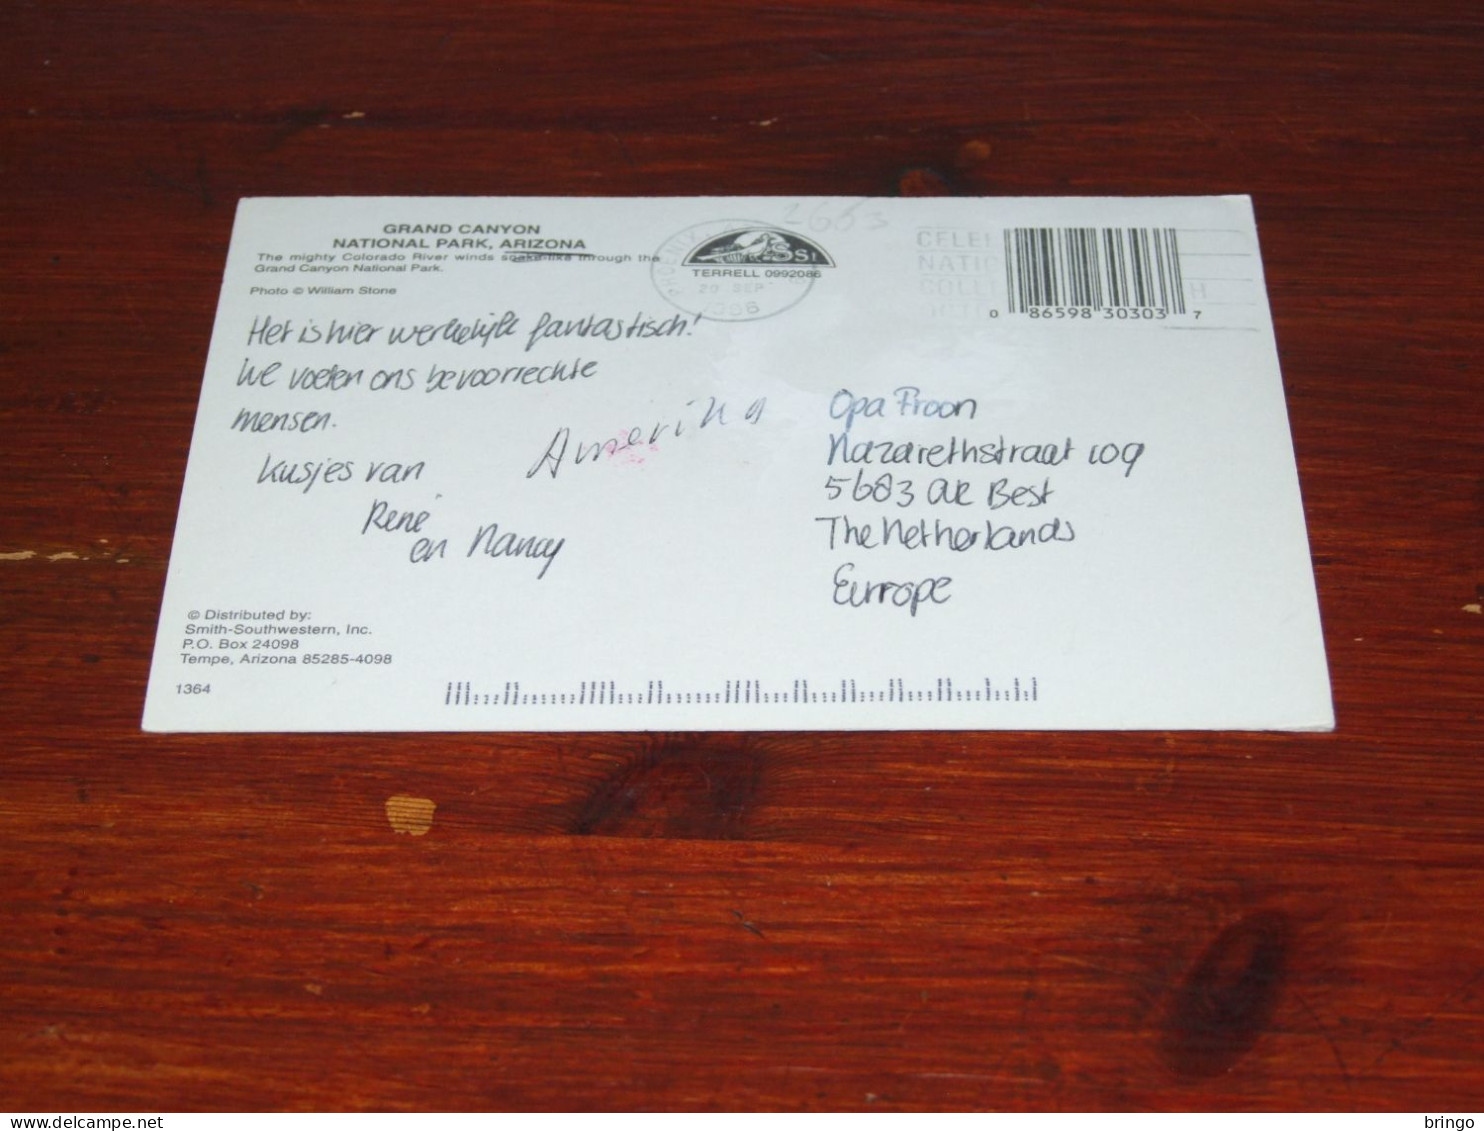 GRAND CANYON
NATIONAL PARK, ARIZONA
The mighty Colorado River winds snake-like through the
Grand Canyon National Park.
Photo © William Stone
Het is hier werkelijk fantastisch!
We voelen ons bevoorrechte
mensen.
Kusjes van
René
en Nancy
Amerika
© Distributed by:
Smith-Southwestern, Inc.
P.O. Box 24098
Tempe, Arizona 85285-4098
1364
2653
PHOENIX
SSI
TERRELL 0992086
20 SEP
CELE
NATIO
COLL
0 86598 30303 7
Opa Froon
Nazarethstraat 109
5683 AK Best
The Netherlands
Europe
bringo